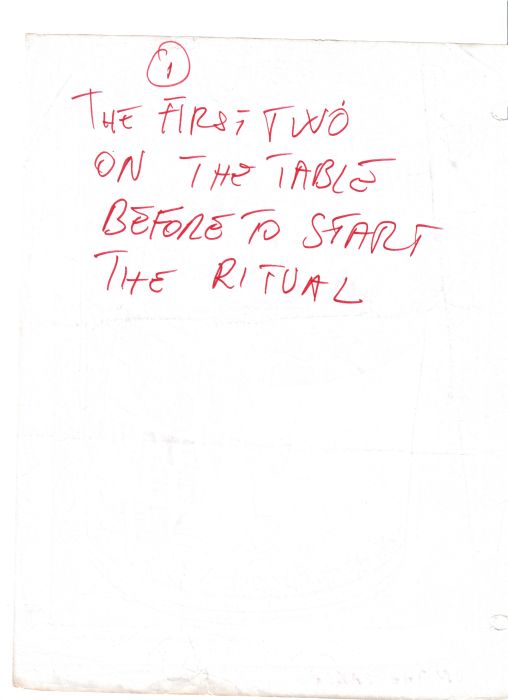 1
THE FIRST TWO
ON THE TABLE
BEFORE TO START
THE RITUAL